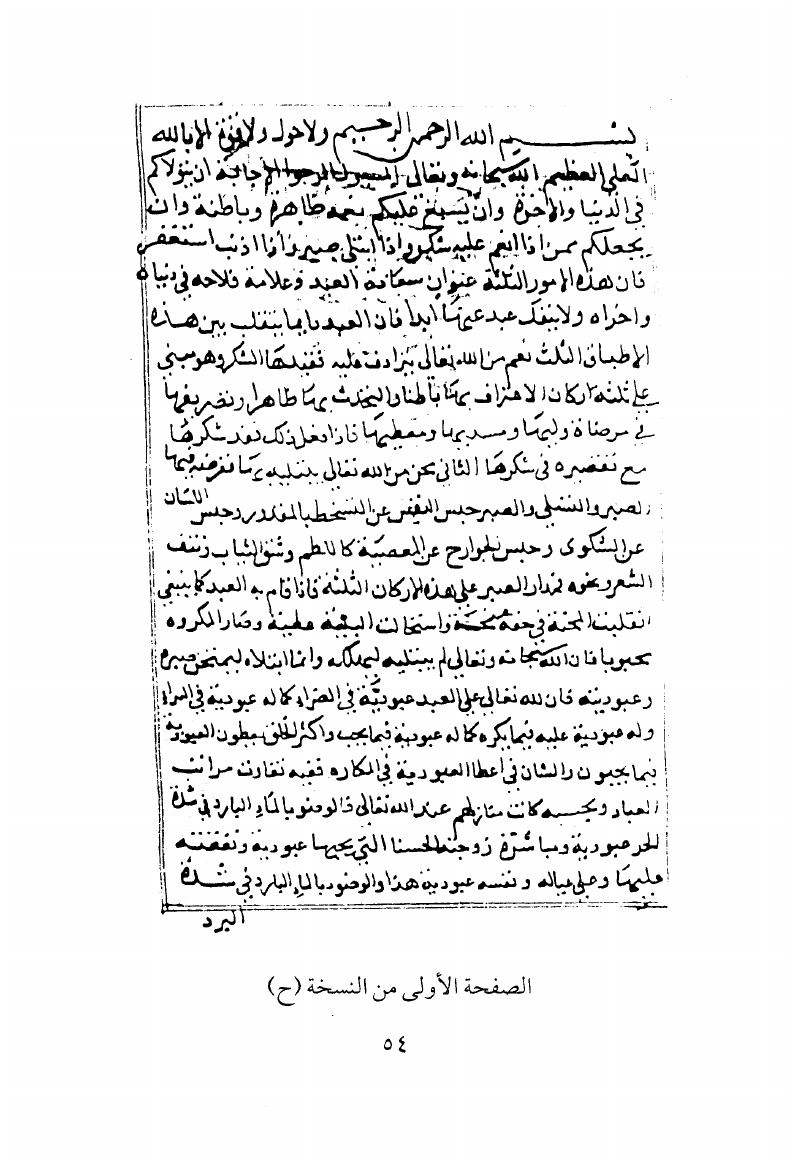 بسم الله الرحمن الرحيم ولا حول ولا قوة الا بالله
العلي العظيم الله سبحانه وتعالى المسؤول المرجو الاجابة ان يتولاكم
في الدنيا والاخرة وان يسبغ عليكم نعمه ظاهرة وباطنة وان
يجعلكم ممن اذا انعم عليه شكر واذا ابتلي صبر واذا اذنب استغفر
فان هذه الامور الثلثة عنوان سعادة العبد وعلامة فلاحه في دنياه
واخراه ولا ينفك عبد عنها ابدا فان العبد دايما يتقلب بين هذه
الاطباق الثلث نعم من الله تعالى تترادف عليه فقيدها الشكر وهو مبني
على ثلثة اركان الاعتراف بها باطنا والتحدث بها ظاهرا وتصريفها
في مرضاة وليها ومسديها ومعطيها فاذا فعل ذلك فقد شكرها
مع تقصيره في شكرها الثاني محن من الله تعالى يبتليه بها ففرضه فيها
الصبر والتسلي والصبر حبس النفس عن التسخط بالمقدور وحبس اللسان
عن الشكوى وحبس الجوارح عن المعصية كاللطم وشق الثياب ونتف
الشعر ونحوه فمدار الصبر على هذه الاركان الثلثة فاذا قام به العبد كما ينبغي
انقلبت المحنة في حقه منحة واستحالت البلية عطية وصار المكروه
محبوبا فان الله سبحانه وتعالى لم يبتليه ليهلكه وانما ابتلاه ليمتحن صبره
وعبوديته فان لله تعالى على العبد عبودية في الضراء كما له عبودية في السراء
وله عبودية عليه فيما يكره كما له عبودية فيما يحب واكثر الخلق يعطون العبودية
فيما يحبون والشان في اعطا العبودية في المكاره ففيه تفاوت مراتب
العباد وبحسبه كانت منازلهم عند الله تعالى فالوضو بالماء البارد في شدة
الحر عبودية ومباشرة زوجته الحسنا التي يحبها عبودية ونفقته
عليها وعلى عياله ونفسه عبودية هذا والوضو بالماء البارد في شدة
البرد
الصفحة الأولى من النسخة (ح)
٥٤